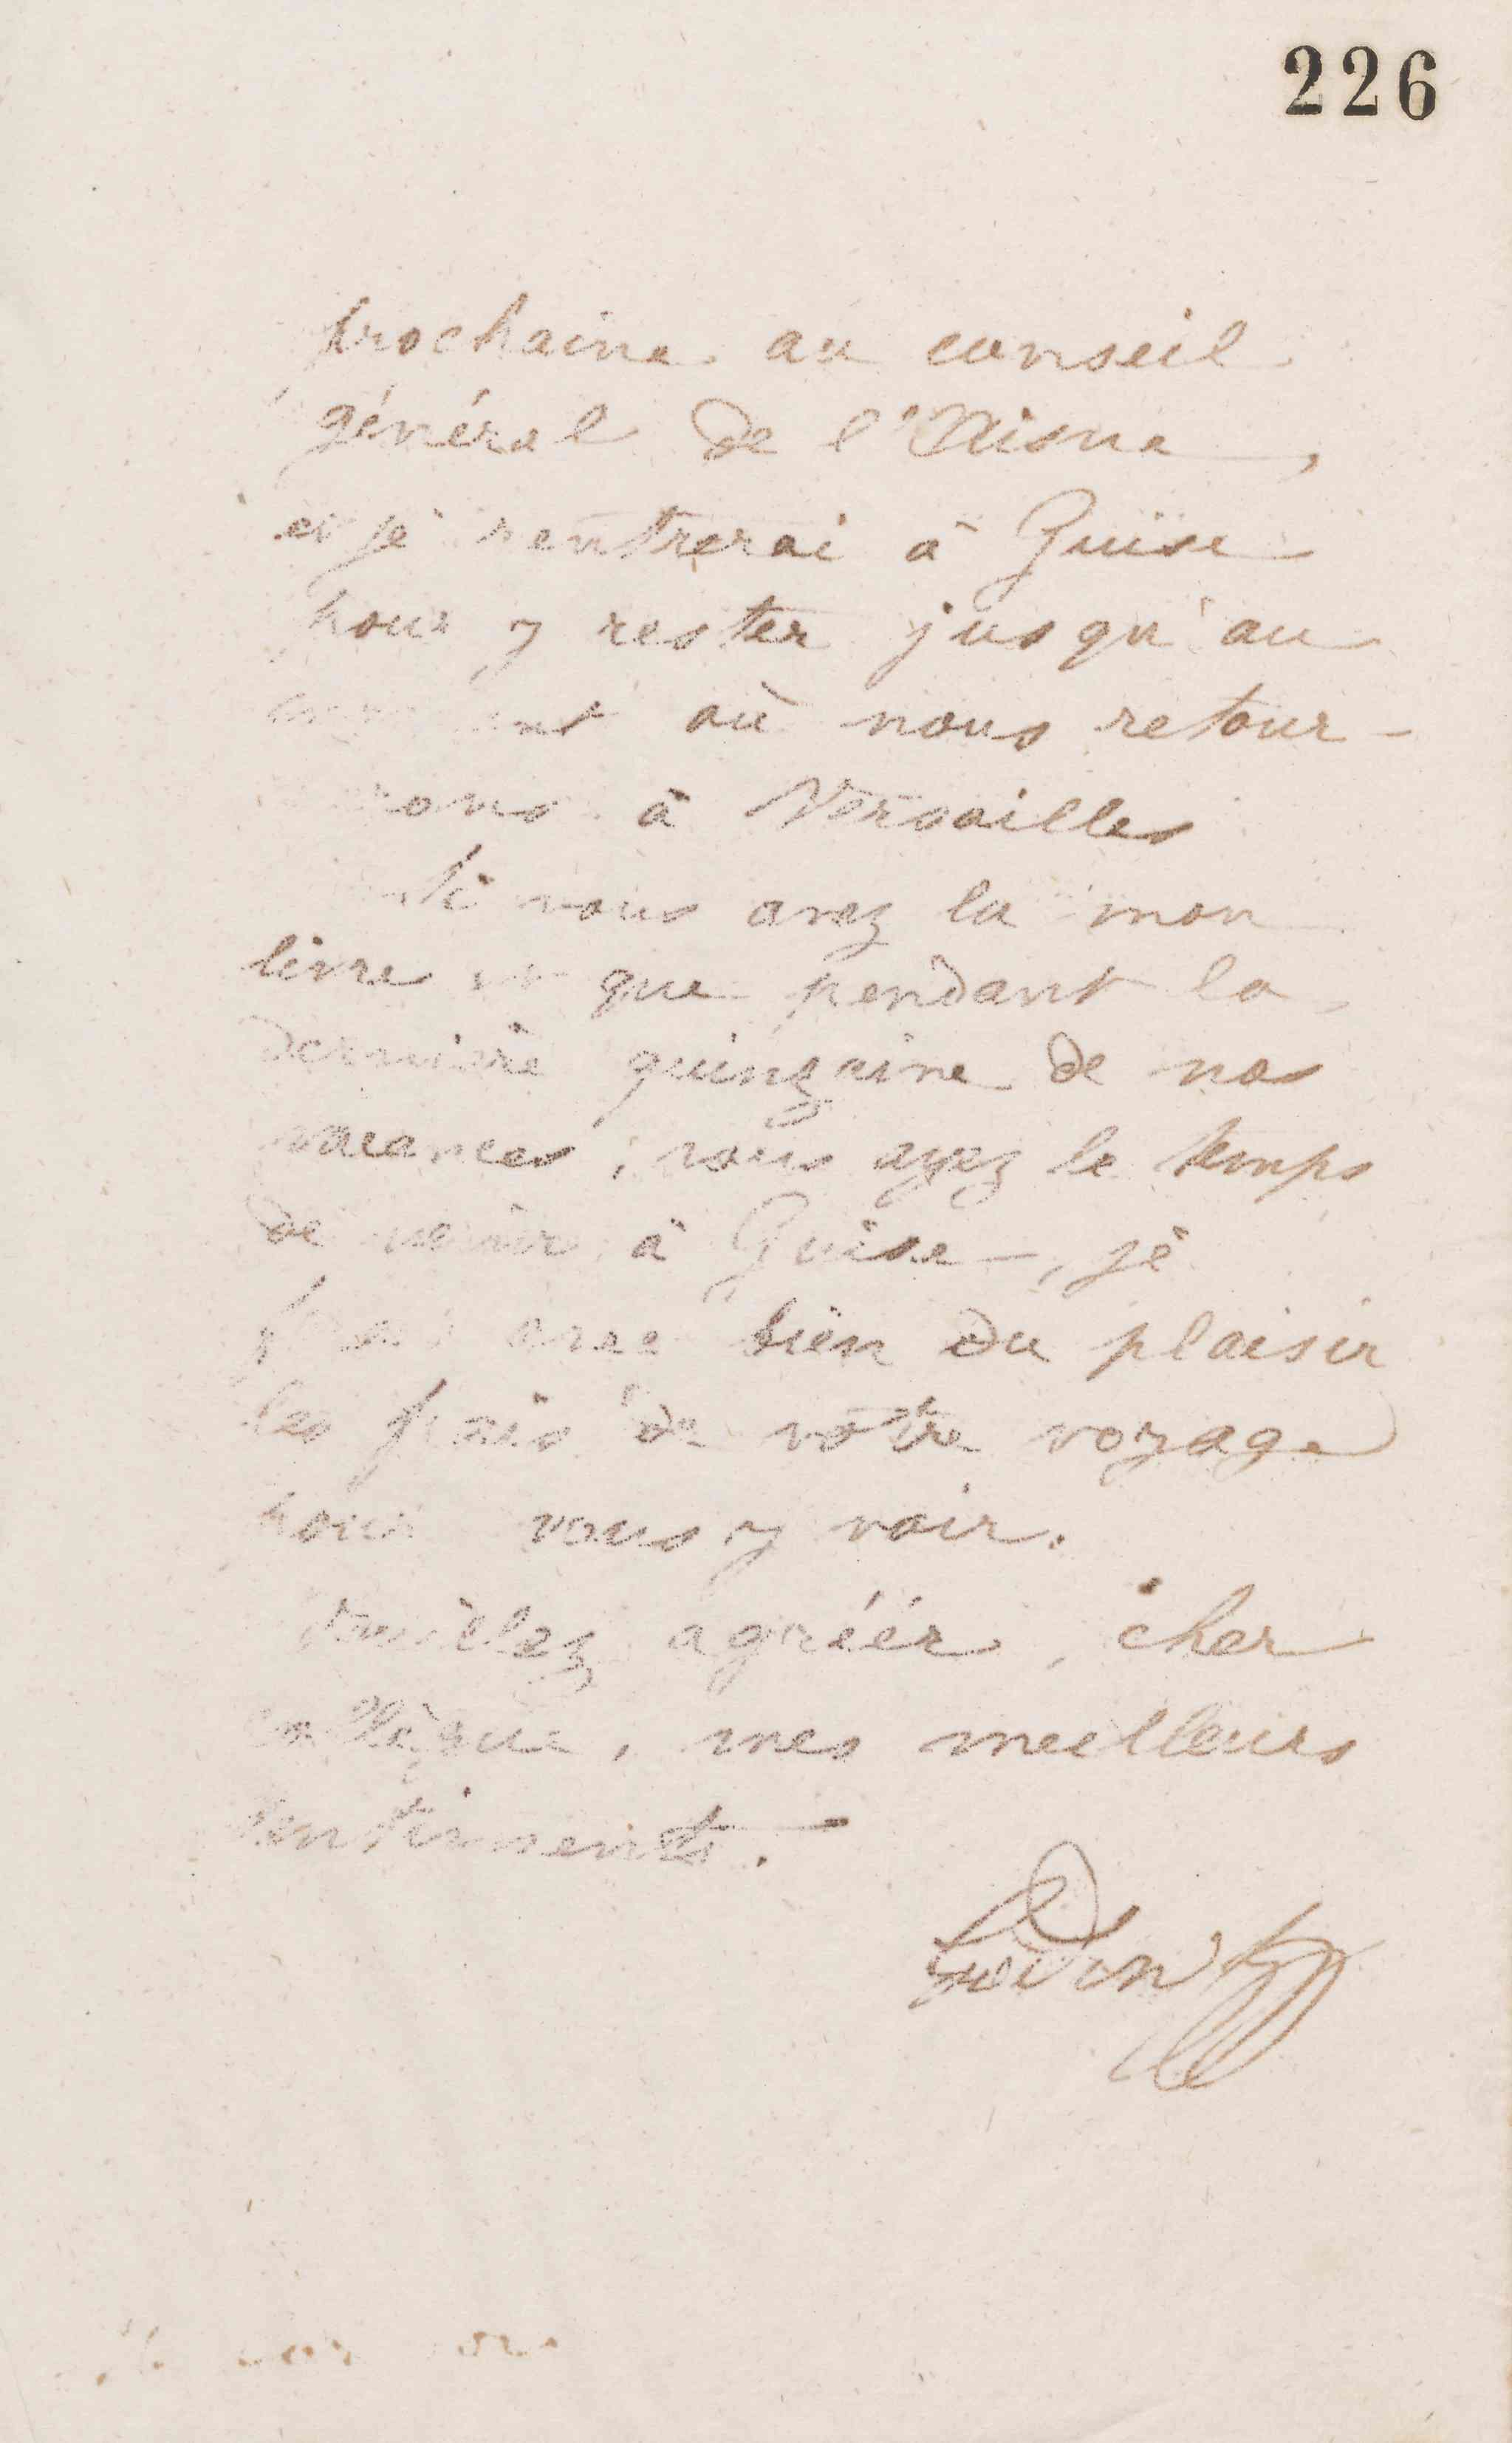 226
prochaine au conseil
général de l'Aisne,
et je rentrerai à Guise
pour y rester jusqu'au
où nous retour-
à Versailles
Si vous avez lu mon
livre et que pendant la
dernière quinzaine de nos
vacances, vous ayez le temps
de venir à Guise, je
avec bien du plaisir
les frais de votre voyage
pour vous y voir.
Veuillez agréér, cher
collègue, mes meilleurs
sentiments.
Godin